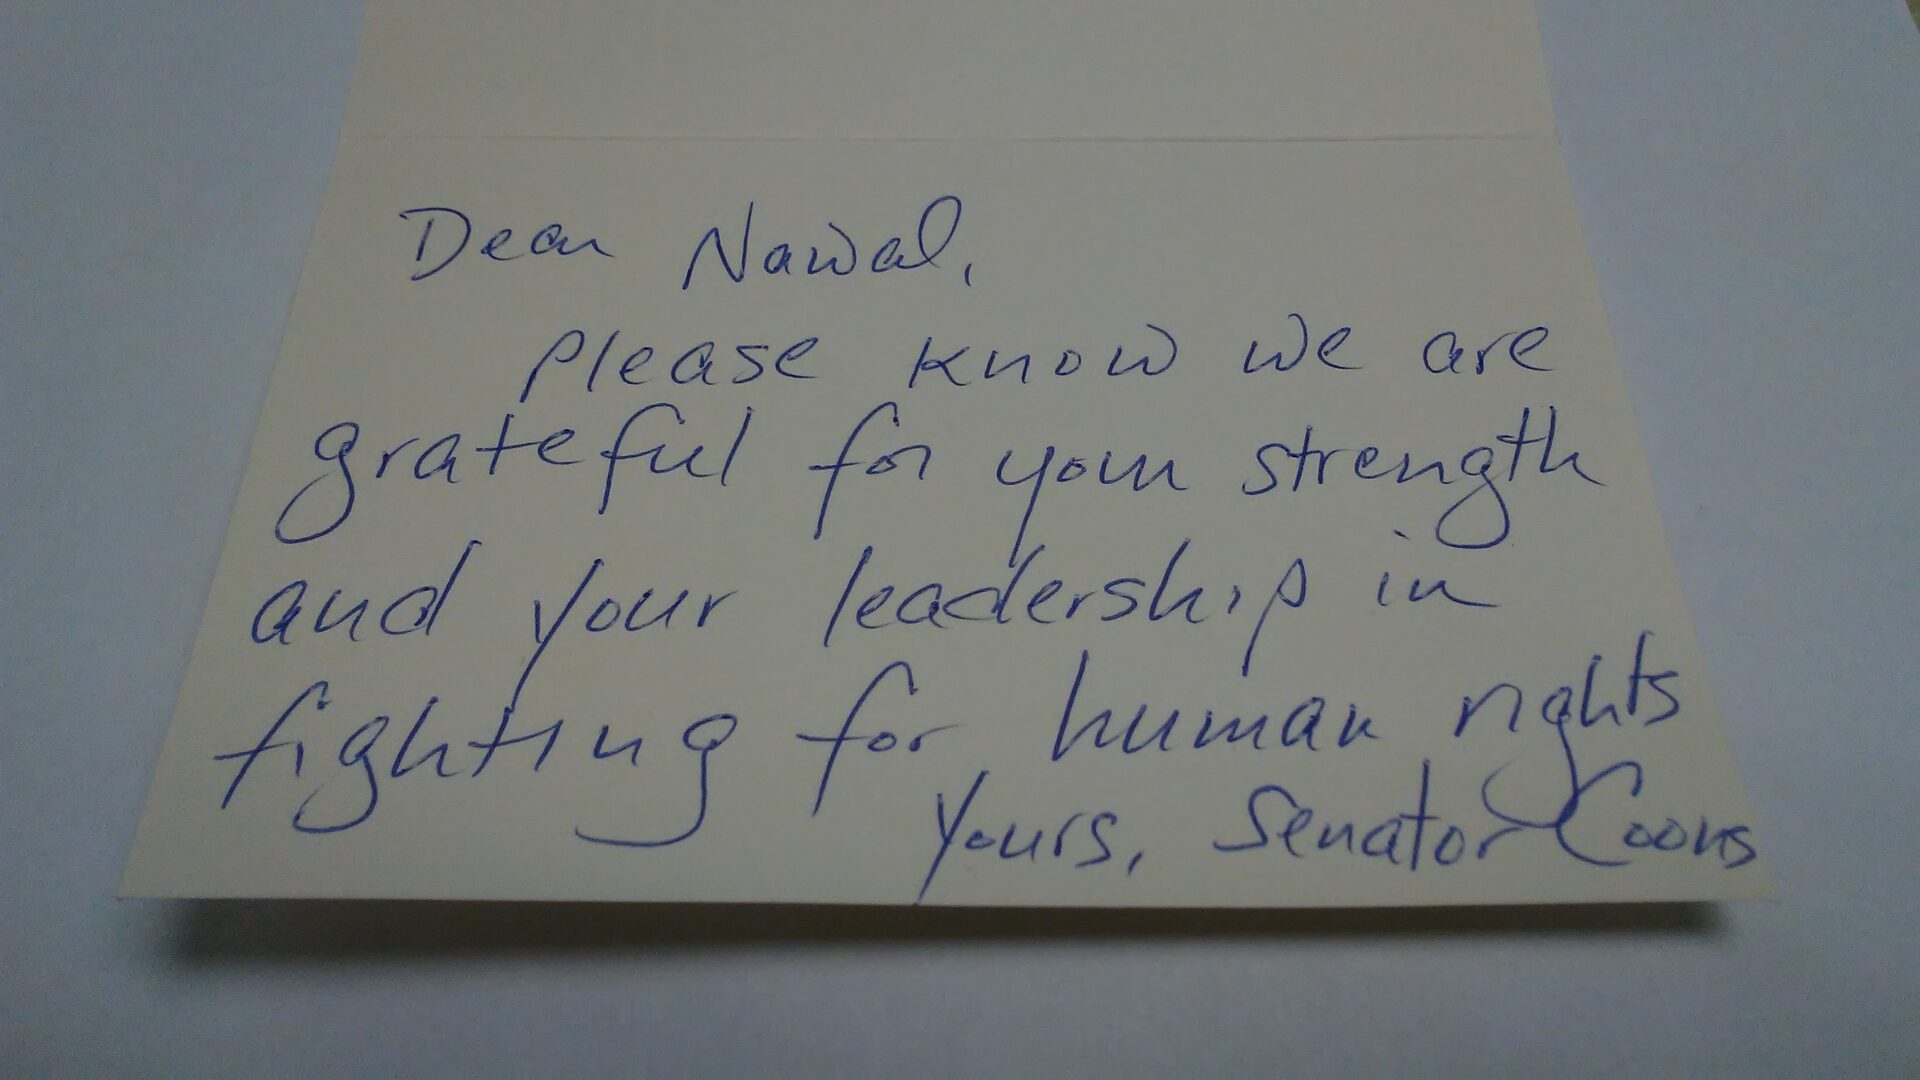 Dear Nawal,
please know we are
grateful for your strength
and your leadership in
fighting for human rights
Yours, Senator Coons